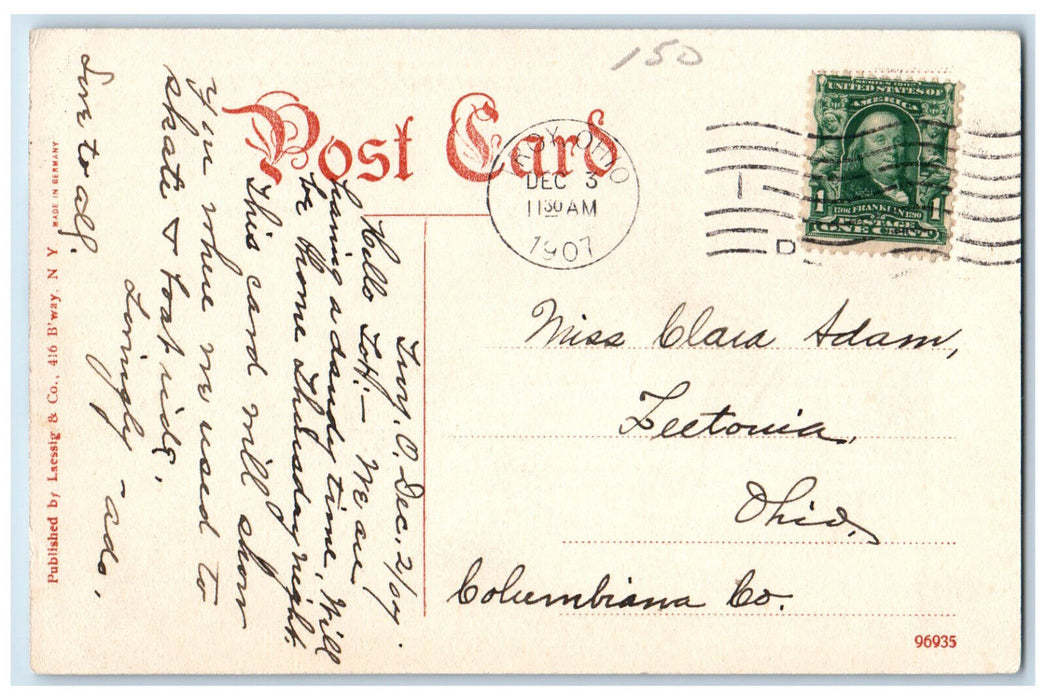 150
Post Card
TROY, OHIO
DEC 3
11 30 AM
1907
1
D
SERIES 1902
UNITED STATES OF
AMERICA
1 1706 FRANKLIN 1790 1
POSTAGE
ONE CENT
Troy. O. Dec. 2/07.
Hello Tot:— We are
having a dandy time. Will
be home Thursday night.
This card will show
you where we used to
skate & boat ride.
Lovingly - Ada.
Love to all.
Miss Clara Adam,
Leetonia,
Ohio,
Columbiana Co.
Published by Laessig & Co., 416 B'way, N Y MADE IN GERMANY
96935